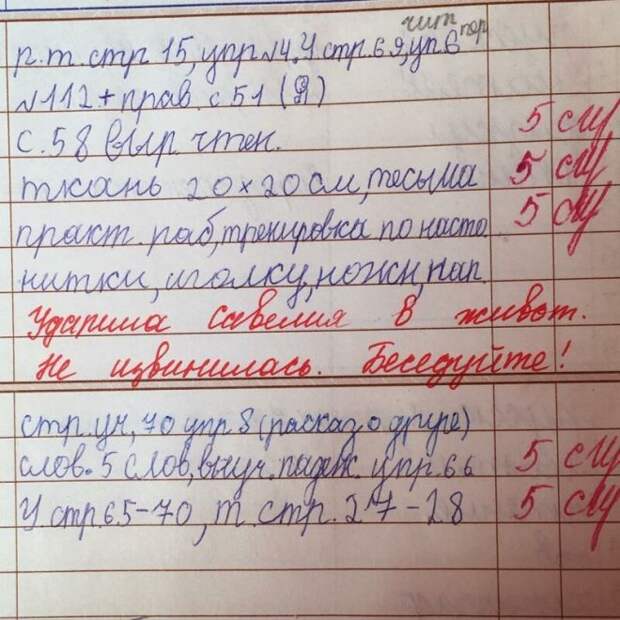 чит пер
р.т. стр 15, упр №4. У стр. 69, уп. 6
№112 + прав. с 51 (Я)
с. 58 выр. чтен. 5
ткань 20×20 см, тесьма 5
практ. раб, тренировка по насто 5
нитки, иголку, ножн, пап.
Ударила Савелия в живот.
Не извинилась. Беседуйте!
стр. уч, 70 упр 8 (расказ о друге)
слов. 5 слов, выуч. падеж. упр. 66 5
У стр. 65-70, т. стр. 27-28 5